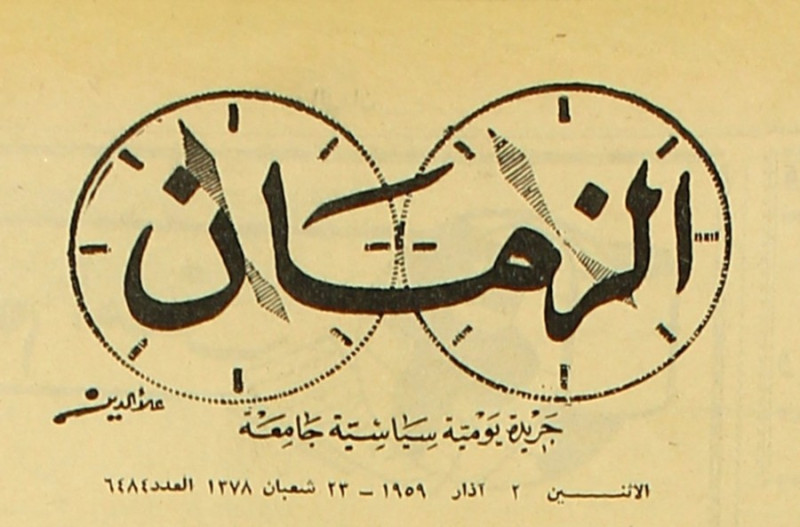 الزمان
علاء الدين
جريدة يومية سياسية جامعة
الاثنين ٢ آذار ١٩٥٩ - ٢٣ شعبان ١٣٧٨ العدد ٦٤٨٤